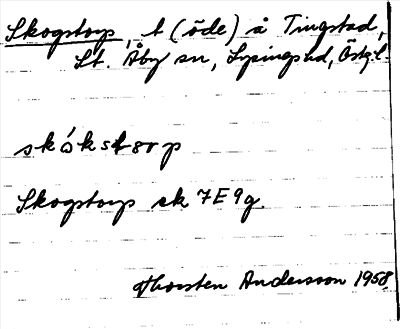 Skogstorp, t (öde) å Tingstad,
St. Åby sn, Lysings hd, Östg.l.
skókstorp
Skogstorp ek 7E9g
Thorsten Andersson 1958